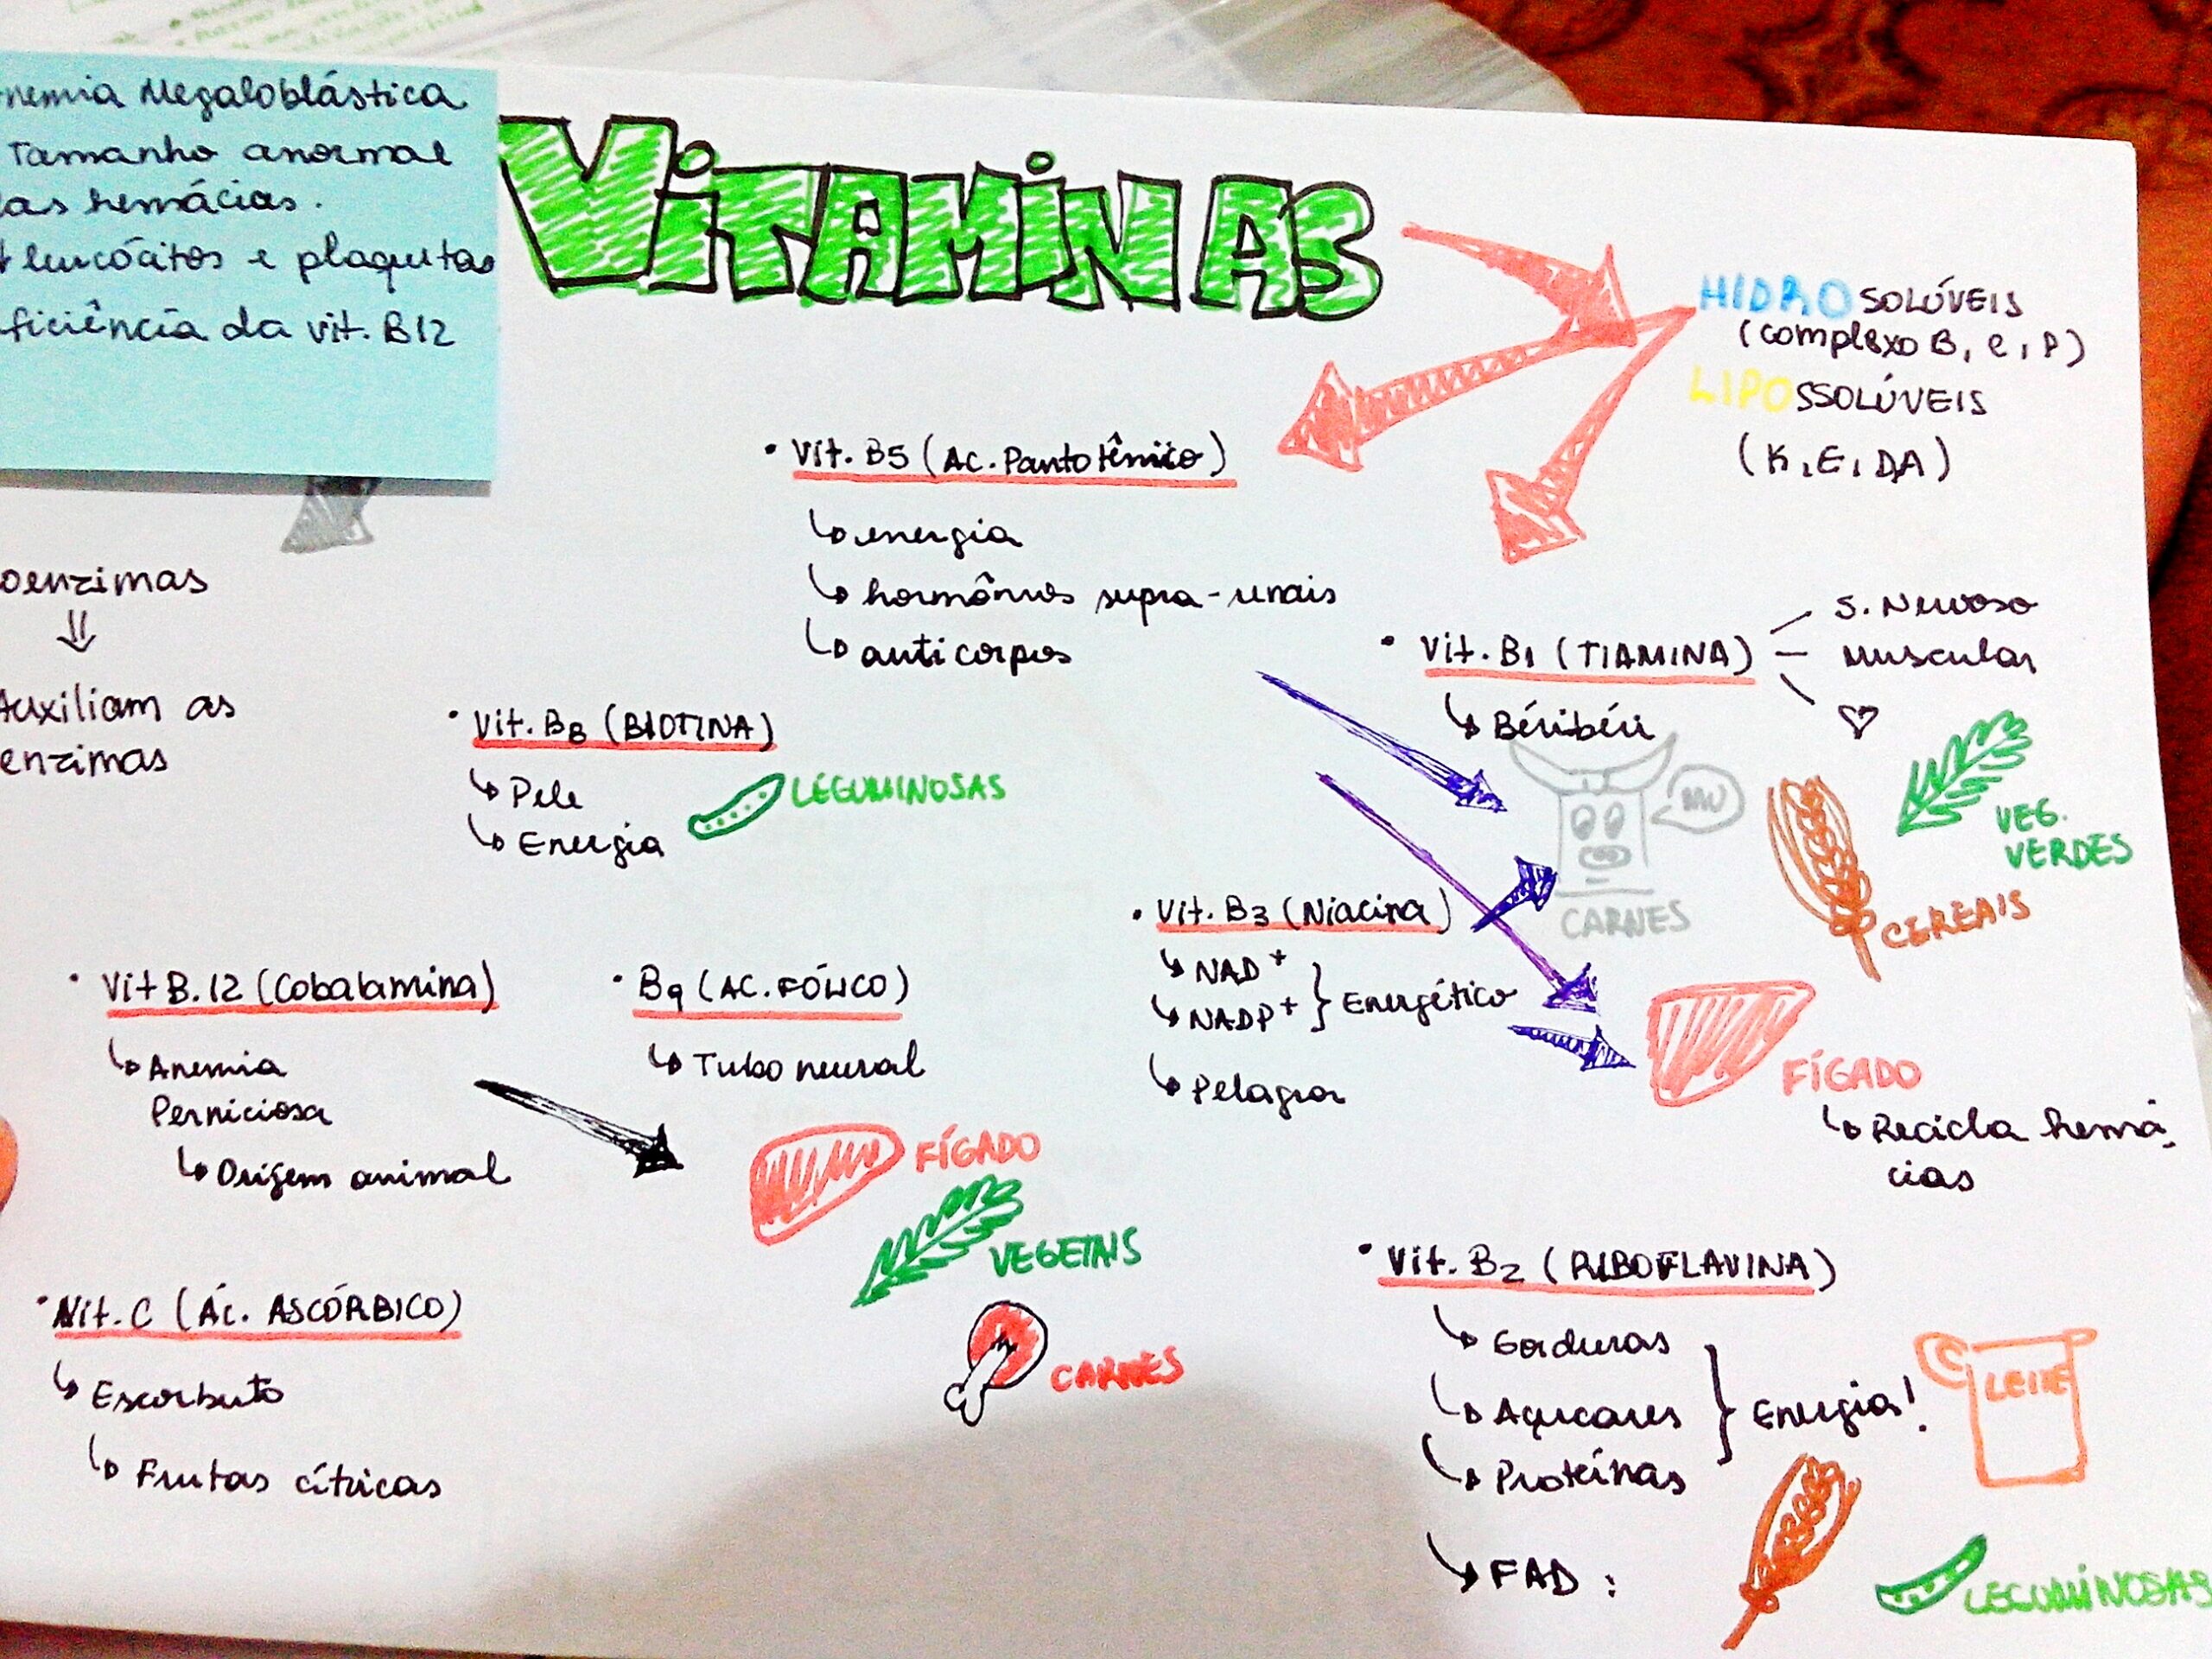 nemia Megaloblástica
Tamanho anormal
das hemácias.
leucócitos e plaquetas
ficiência da vit. B12
VITAMINAS
HIDROSOLÚVEIS
(complexo B, C, P)
LIPOSSOLÚVEIS
(K, E, DA)
oenzimas
Auxiliam as
enzimas
• Vit. B5 (AC. Pantotênico)
energia
hormônios supra-renais
anticorpos
• Vit. B1 (TIAMINA)
S. Nervoso
Muscular
Béribéri
MU
CARNES
CEREAIS
VEG.
VERDES
• Vit. B8 (BIOTINA)
Pele
Energia
LEGUMINOSAS
• Vit. B3 (Niacina)
NAD+
NADP+ } Energético
Pelagra
FÍGADO
Recicla hemá-
cias
• Vit B.12 (Cobalamina)
Anemia
Perniciosa
Origem animal
• B9 (AC. FÓLICO)
Tubo neural
FÍGADO
VEGETAIS
CARNES
• Vit. C (ÁC. ASCÓRBICO)
Escorbuto
Frutas cítricas
• Vit. B2 (RIBOFLAVINA)
Gorduras
Açucares } Energia!
Proteínas
FAD :
LEITE
LEGUMINOSAS